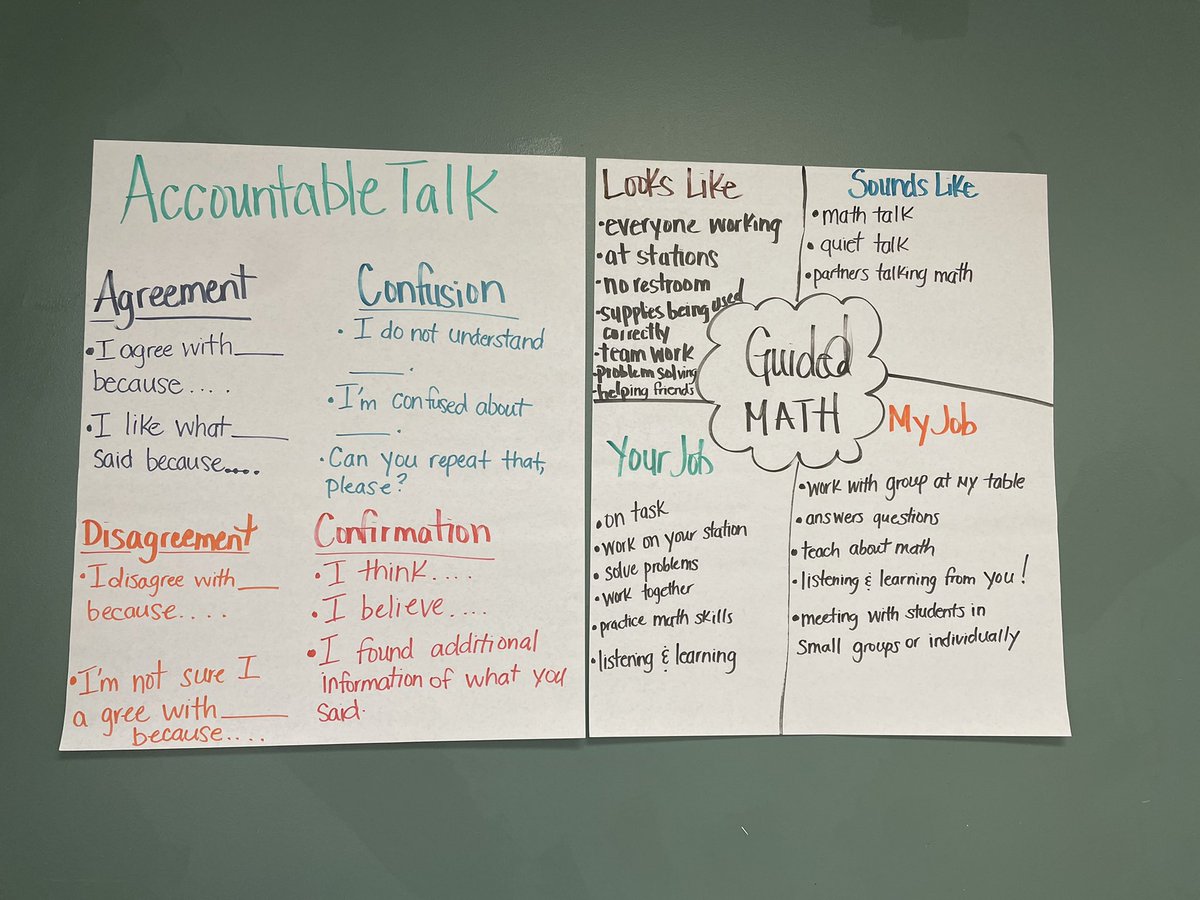 Accountable Talk
Agreement
• I agree with____
because....
• I like what____
said because....
Confusion
• I do not understand
____.
• I'm confused about
____.
• Can you repeat that,
please?
Disagreement
• I disagree with___
because....
• I'm not sure I
a gree with_____
because....
Confirmation
• I think....
• I believe....
• I found additional
information of what you
said.
Looks Like
• everyone working
• at stations
• no restroom
• supplies being used
correctly
• team work
• problem solving
• helping friends
Sounds Like
• math talk
• quiet talk
• partners talking math
Guided
MATH
Your Job
• on task
• work on your station
• solve problems
• work together
• practice math skills
• listening & learning
My Job
• work with group at my table
• answers questions
• teach about math
• listening & learning from you!
• meeting with students in
small groups or individually